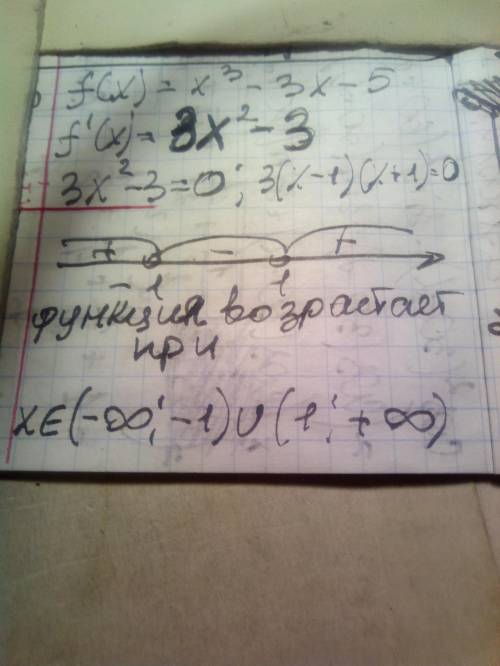 f(x) = x³ - 3x - 5
f'(x) = 3x² - 3
3x² - 3 = 0; 3(x-1)(x+1)=0
+ - +
-1 1
функция возрастает
при
x∈(-∞;-1)∪(1;+∞)